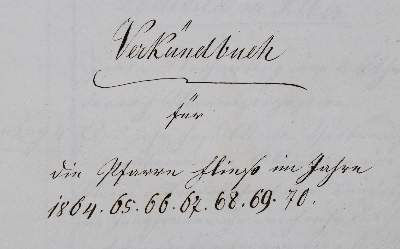 Verkündbuch
für
die Pfarre Fließ im Jahre
1864. 65. 66. 67. 68. 69. 70.